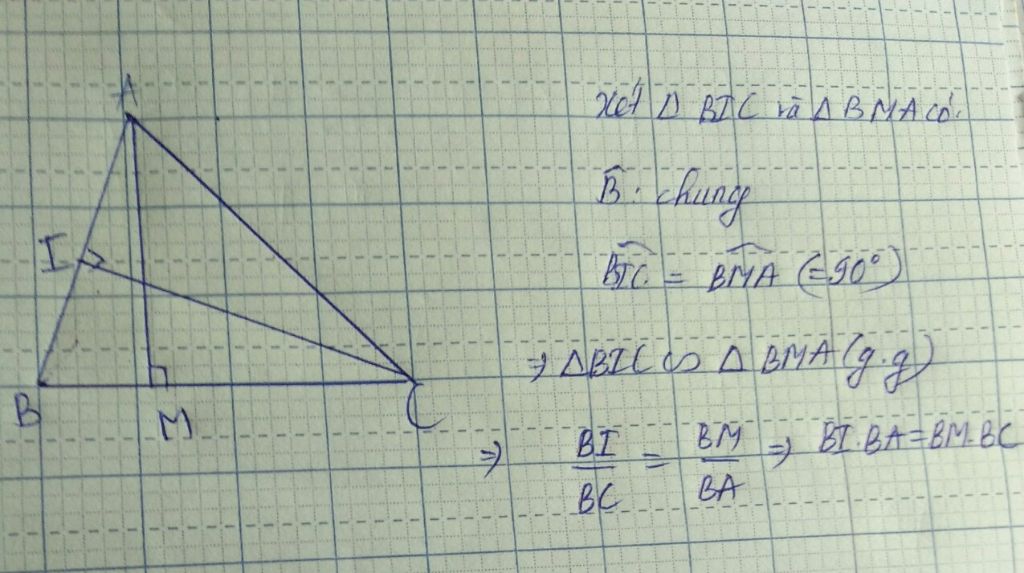 A
I
B
M
C
Xét Δ BIC và Δ BMA có:
B̂: chung
B͡IC = B͡MA (=90°)
⇒ ΔBIC ∽ Δ BMA (g.g)
⇒ BI/BC = BM/BA ⇒ BI.BA = BM.BC